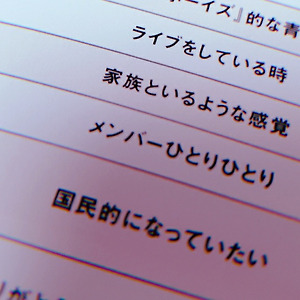 ボーイズ』的な青
ライブをしている時
家族といるような感覚
メンバーひとりひとり
国民的になっていたい